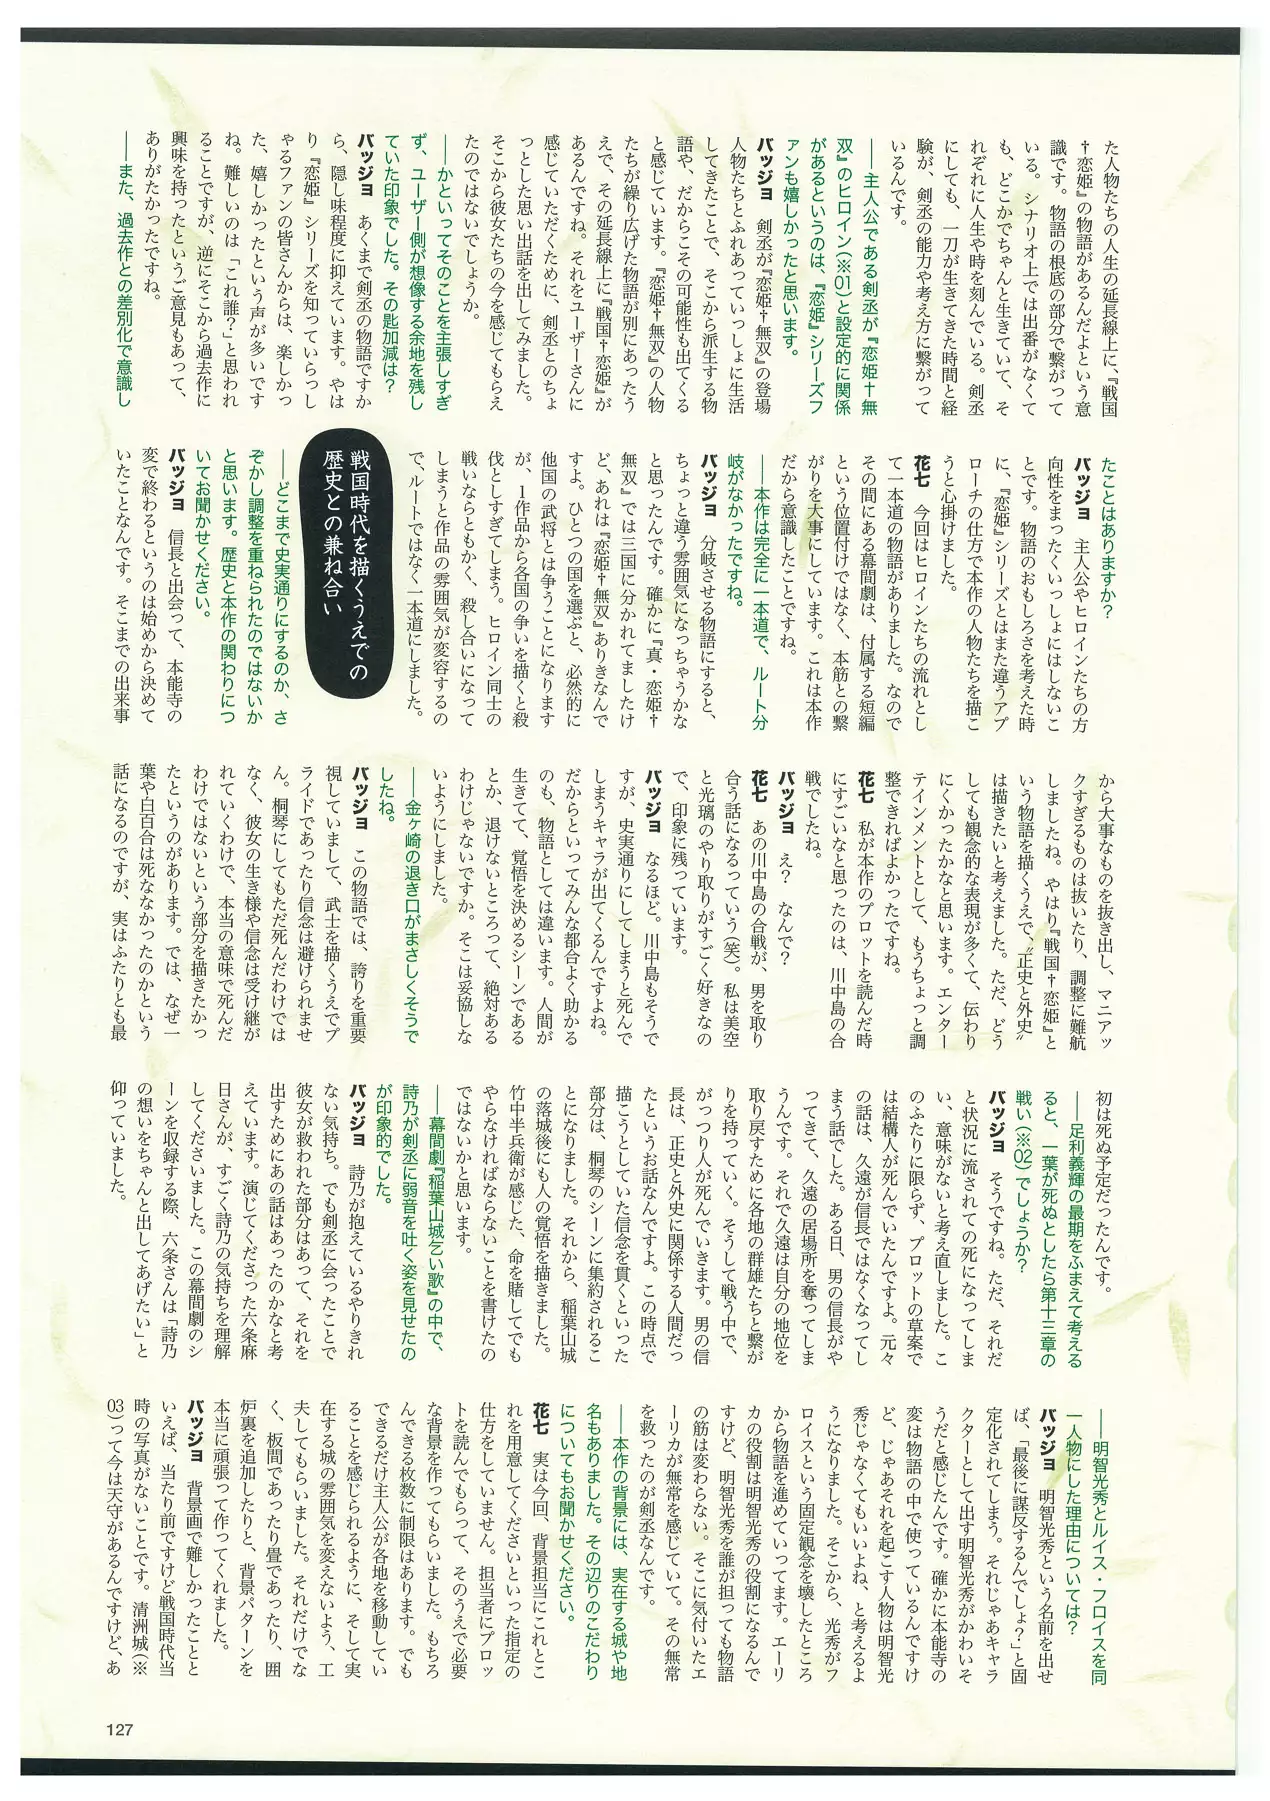 た人物たちの人生の延長線上に、『戦国
†恋姫』の物語があるんだよという意
識です。物語の根底の部分で繋がって
いる。シナリオ上では出番がなくて
も、どこかでちゃんと生きていて、そ
れぞれに人生や時を刻んでいる。剣丞
にしても、一刀が生きてきた時間と経
験が、剣丞の能力や考え方に繋がって
いるんです。
――主人公である剣丞が『恋姫†無
双』のヒロイン(※01)と設定的に関係
があるというのは、『恋姫』シリーズフ
ァンも嬉しかったと思います。
バッジョ　剣丞が『恋姫†無双』の登場
人物たちとふれあっていっしょに生活
してきたことで、そこから派生する物
語や、だからこその可能性も出てくる
と感じています。『恋姫†無双』の人物
たちが繰り広げた物語が別にあったう
えで、その延長線上に『戦国†恋姫』が
あるんですね。それをユーザーさんに
感じていただくために、剣丞とのちょ
っとした思い出話を出してみました。
そこから彼女たちの今を感じてもらえ
たのではないでしょうか。
――かといってそのことを主張しすぎ
ず、ユーザー側が想像する余地を残し
ていた印象でした。その匙加減は？
バッジョ　あくまで剣丞の物語ですか
ら、隠し味程度に抑えています。やは
り『恋姫』シリーズを知っていらっし
ゃるファンの皆さんからは、楽しかっ
た、嬉しかったという声が多いです
ね。難しいのは「これ誰？」と思われ
ることですが、逆にそこから過去作に
興味を持ったというご意見もあって、
ありがたかったですね。
――また、過去作との差別化で意識し
たことはありますか？
バッジョ　主人公やヒロインたちの方
向性をまったくいっしょにはしないこ
とです。物語のおもしろさを考えた時
に、『恋姫』シリーズとはまた違うアプ
ローチの仕方で本作の人物たちを描こ
うと心掛けました。
花七　今回はヒロインたちの流れとし
て一本道の物語がありました。なので
その間にある幕間劇は、付属する短編
という位置付けではなく、本筋との繋
がりを大事にしています。これは本作
だから意識したことですね。
――本作は完全に一本道で、ルート分
岐がなかったですね。
バッジョ　分岐させる物語にすると、
ちょっと違う雰囲気になっちゃうかな
と思ったんです。確かに『真・恋姫†
無双』では三国に分かれてましたけ
ど、あれは『恋姫†無双』ありきなんで
すよ。ひとつの国を選ぶと、必然的に
他国の武将とは争うことになります
が、１作品から各国の争いを描くと殺
伐としすぎてしまう。ヒロイン同士の
戦いならともかく、殺し合いになって
しまうと作品の雰囲気が変容するの
で、ルートではなく一本道にしました。
戦国時代を描くうえでの
歴史との兼ね合い
――どこまで史実通りにするのか、さ
ぞかし調整を重ねられたのではないか
と思います。歴史と本作の関わりにつ
いてお聞かせください。
バッジョ　信長と出会って、本能寺の
変で終わるというのは始めから決めて
いたことなんです。そこまでの出来事
から大事なものを抜き出し、マニアッ
クすぎるものは抜いたり、調整に難航
しましたね。やはり『戦国†恋姫』と
いう物語を描くうえで、〝正史と外史〟
は描きたいと考えました。ただ、どう
しても観念的な表現が多くて、伝わり
にくかったかなと思います。エンター
テインメントとして、もうちょっと調
整できればよかったですね。
花七　私が本作のプロットを読んだ時
にすごいなと思ったのは、川中島の合
戦でしたね。
バッジョ　え？　なんで？
花七　あの川中島の合戦が、男を取り
合う話になるっていう(笑)。私は美空
と光璃のやり取りがすごく好きなの
で、印象に残っています。
バッジョ　なるほど。川中島もそうで
すが、史実通りにしてしまうと死んで
しまうキャラが出てくるんですよね。
だからといってみんな都合よく助かる
のも、物語としては違います。人間が
生きてて、覚悟を決めるシーンである
とか、退けないところって、絶対ある
わけじゃないですか。そこは妥協しな
いようにしました。
――金ヶ崎の退き口がまさしくそうで
したね。
バッジョ　この物語では、誇りを重要
視していまして、武士を描くうえでプ
ライドであったり信念は避けられませ
ん。桐琴にしてもただ死んだわけでは
なく、彼女の生き様や信念は受け継が
れていくわけで、本当の意味で死んだ
わけではないという部分を描きたかっ
たというのがあります。では、なぜ一
葉や白百合は死ななかったのかという
話になるのですが、実はふたりとも最
初は死ぬ予定だったんです。
――足利義輝の最期をふまえて考える
ると、一葉が死ぬとしたら第十三章の
戦い(※02)でしょうか？
バッジョ　そうですね。ただ、それだ
と状況に流されての死になってしま
い、意味がないと考え直しました。こ
のふたりに限らず、プロットの草案で
は結構人が死んでいたんですよ。元々
の話は、久遠が信長ではなくなってし
まって、久遠の居場所を奪ってしま
う話でした。ある日、男の信長がや
ってきて、久遠の居場所を奪ってしま
うんです。それで久遠は自分の地位を
取り戻すために各地の群雄たちと繋が
りを持っていく。そうして戦う中で、
がっつり人が死んでいきます。男の信
長は、正史と外史に関係する人間だっ
たというお話なんですよ。この時点で
描こうとしていた信念を貫くといった
部分は、桐琴のシーンに集約されるこ
とになりました。それから、稲葉山城
の落城後にも人の覚悟を描きました。
竹中半兵衛が感じた、命を賭してでも
やらなければならないことを書けたの
ではないかと思います。
――幕間劇『稲葉山城乞い歌』の中で、
詩乃が剣丞に弱音を吐く姿を見せたの
が印象的でした。
バッジョ　詩乃が抱えているやりきれ
ない気持ち。でも剣丞に会ったことで
彼女が救われた部分はあって、それを
出すためにあの話はあったのかなと考
えています。演じてくださった六条麻
日さんが、すごく詩乃の気持ちを理解
してくださいました。この幕間劇のシ
ーンを収録する際、六条さんは「詩乃
の想いをちゃんと出してあげたい」と
仰っていました。
――明智光秀とルイス・フロイスを同
一人物にした理由については？
バッジョ　明智光秀という名前を出せ
ば、「最後に謀反するんでしょ？」と固
定化されてしまう。それじゃあキャラ
クターとして出す明智光秀がかわいそ
うだと感じたんです。確かに本能寺の
変は物語の中で使っているんですけ
ど、じゃあそれを起こす人物は明智光
秀じゃなくてもいいよね、と考えるよ
うになりました。そこから、光秀がフ
ロイスという固定観念を壊したところ
から物語を進めていってます。エーリ
カの役割は明智光秀の役割になるんで
すけど、明智光秀を誰が担っても物語
の筋は変わらない。そこに気付いたエ
ーリカが無常を感じていて。その無常
を救ったのが剣丞なんです。
――本作の背景には、実在する城や地
名もありました。その辺りのこだわり
についてもお聞かせください。
花七　実は今回、背景担当にこれとこ
れを用意してくださいといった指定の
仕方をしていません。担当者にプロッ
トを読んでもらって、そのうえで必要
な背景を作ってもらいました。もちろ
んできる枚数に制限はあります。でも
できるだけ主人公が各地を移動してい
ることを感じられるように、そして実
在する城の雰囲気を変えないよう、工
夫してもらいました。それだけでな
く、板間であったり畳であったり、囲
炉裏を追加したりと、背景パターンを
本当に頑張って作ってくれました。
バッジョ　背景画で難しかったことと
いえば、当たり前ですけど戦国時代当
時の写真がないことです。清洲城(※
03)って今は天守があるんですけど、あ
127